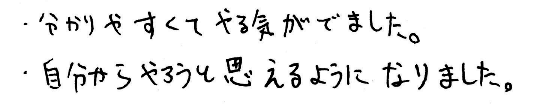 ・分かりやすくてやる気がでました。
・自分からやろうと思えるようになりました。